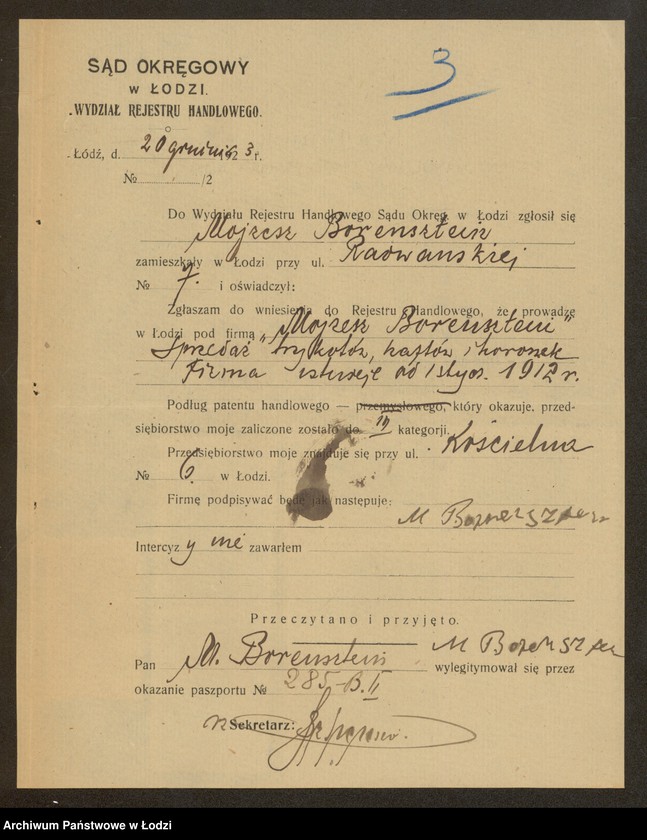 3
SĄD OKRĘGOWY
W ŁODZI.
WYDZIAŁ REJESTRU HANDLOWEGO.
Łódź, d. 20 grudnia 192 3 r.
№ /2
Do Wydziału Rejestru Handlowego Sądu Okręg. w Łodzi zgłosił się
Mojżesz Borensztein
zamieszkały w Łodzi przy ul. Radwańskiej
№ 7. i oświadczył:
Zgłaszam do wniesienia do Rejestru Handlowego, że prowadzę
w Łodzi pod firmą „Mojżesz Borensztein"
Sprzedaż trykotów, haftów i koronek
Firma istnieje od 1 stycz. 1912 r.
Podług patentu handlowego — przemysłowego, który okazuje, przed-
siębiorstwo moje zaliczone zostało do III kategorji.
Przedsiębiorstwo moje znajduje się przy ul. Kościelna
№ 6. w Łodzi.
Firmę podpisywać będę jak następuje:
M
Intercyzy nie zawarłem
Przeczytano i przyjęto.
M
Pan M. Borensztein wylegitymował się przez
okazanie paszportu № 285-B.II
Sekretarz:
Archiwum Państwowe w Łodzi